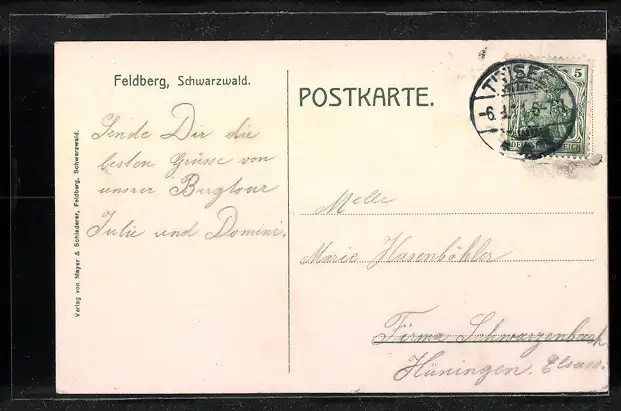 Feldberg, Schwarzwald.
Sende Dir die
besten Grüsse von
unsrer Bergtour
Julie und Domini.
Verlag von Mayer & Schladerer, Feldberg, Schwarzwald.
POSTKARTE.
TITISEE
5
Melle
Marie Hasenböhler
Firma Schwarzenbach
Hüningen. Elsass.